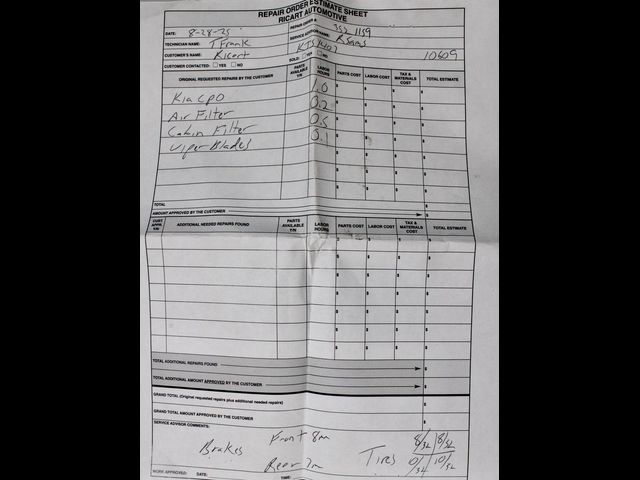 REPAIR ORDER ESTIMATE SHEET
RICART AUTOMOTIVE
DATE: 8-28-25 REPAIR ORDER #: 352 1159
TECHNICIAN NAME: T Frank SERVICE ADVISOR NAME: R Sams
CUSTOMER'S NAME: Ricart 10609
CUSTOMER CONTACTED: YES NO SOLD: YES NO
ORIGINAL REQUESTED REPAIRS BY THE CUSTOMER PARTS AVAILABLE Y/N LABOR HOURS PARTS COST LABOR COST TAX & MATERIALS COST TOTAL ESTIMATE
Kia CPO 1.0 $ $ $ $
Air Filter 0.2 $ $ $ $
Cabin Filter 0.5 $ $ $ $
Wiper Blades 0.1 $ $ $ $
$ $ $ $
$ $ $ $
$ $ $ $
TOTAL $
AMOUNT APPROVED BY THE CUSTOMER $
CUST. APPR. Y/N ADDITIONAL NEEDED REPAIRS FOUND PARTS AVAILABLE Y/N LABOR HOURS PARTS COST LABOR COST TAX & MATERIALS COST TOTAL ESTIMATE
$ $ $ $
$ $ $ $
$ $ $ $
$ $ $ $
$ $ $ $
$ $ $ $
$ $ $ $
TOTAL ADDITIONAL REPAIRS FOUND $
TOTAL ADDITIONAL AMOUNT APPROVED BY THE CUSTOMER $
GRAND TOTAL (Original requested repairs plus additional needed repairs) $
GRAND TOTAL AMOUNT APPROVED BY THE CUSTOMER $
SERVICE ADVISOR COMMENTS:
Brakes Front 8m Tires 8/32 8/32
Rear 7m 10/32
WORK APPROVED: DATE: TIME: